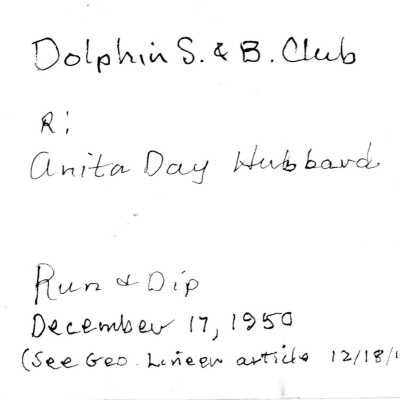 Dolphin S. & B. Club
R:
Anita Day Hubbard
Run & Dip
December 17, 1950
(See Geo. Lineer article 12/18/